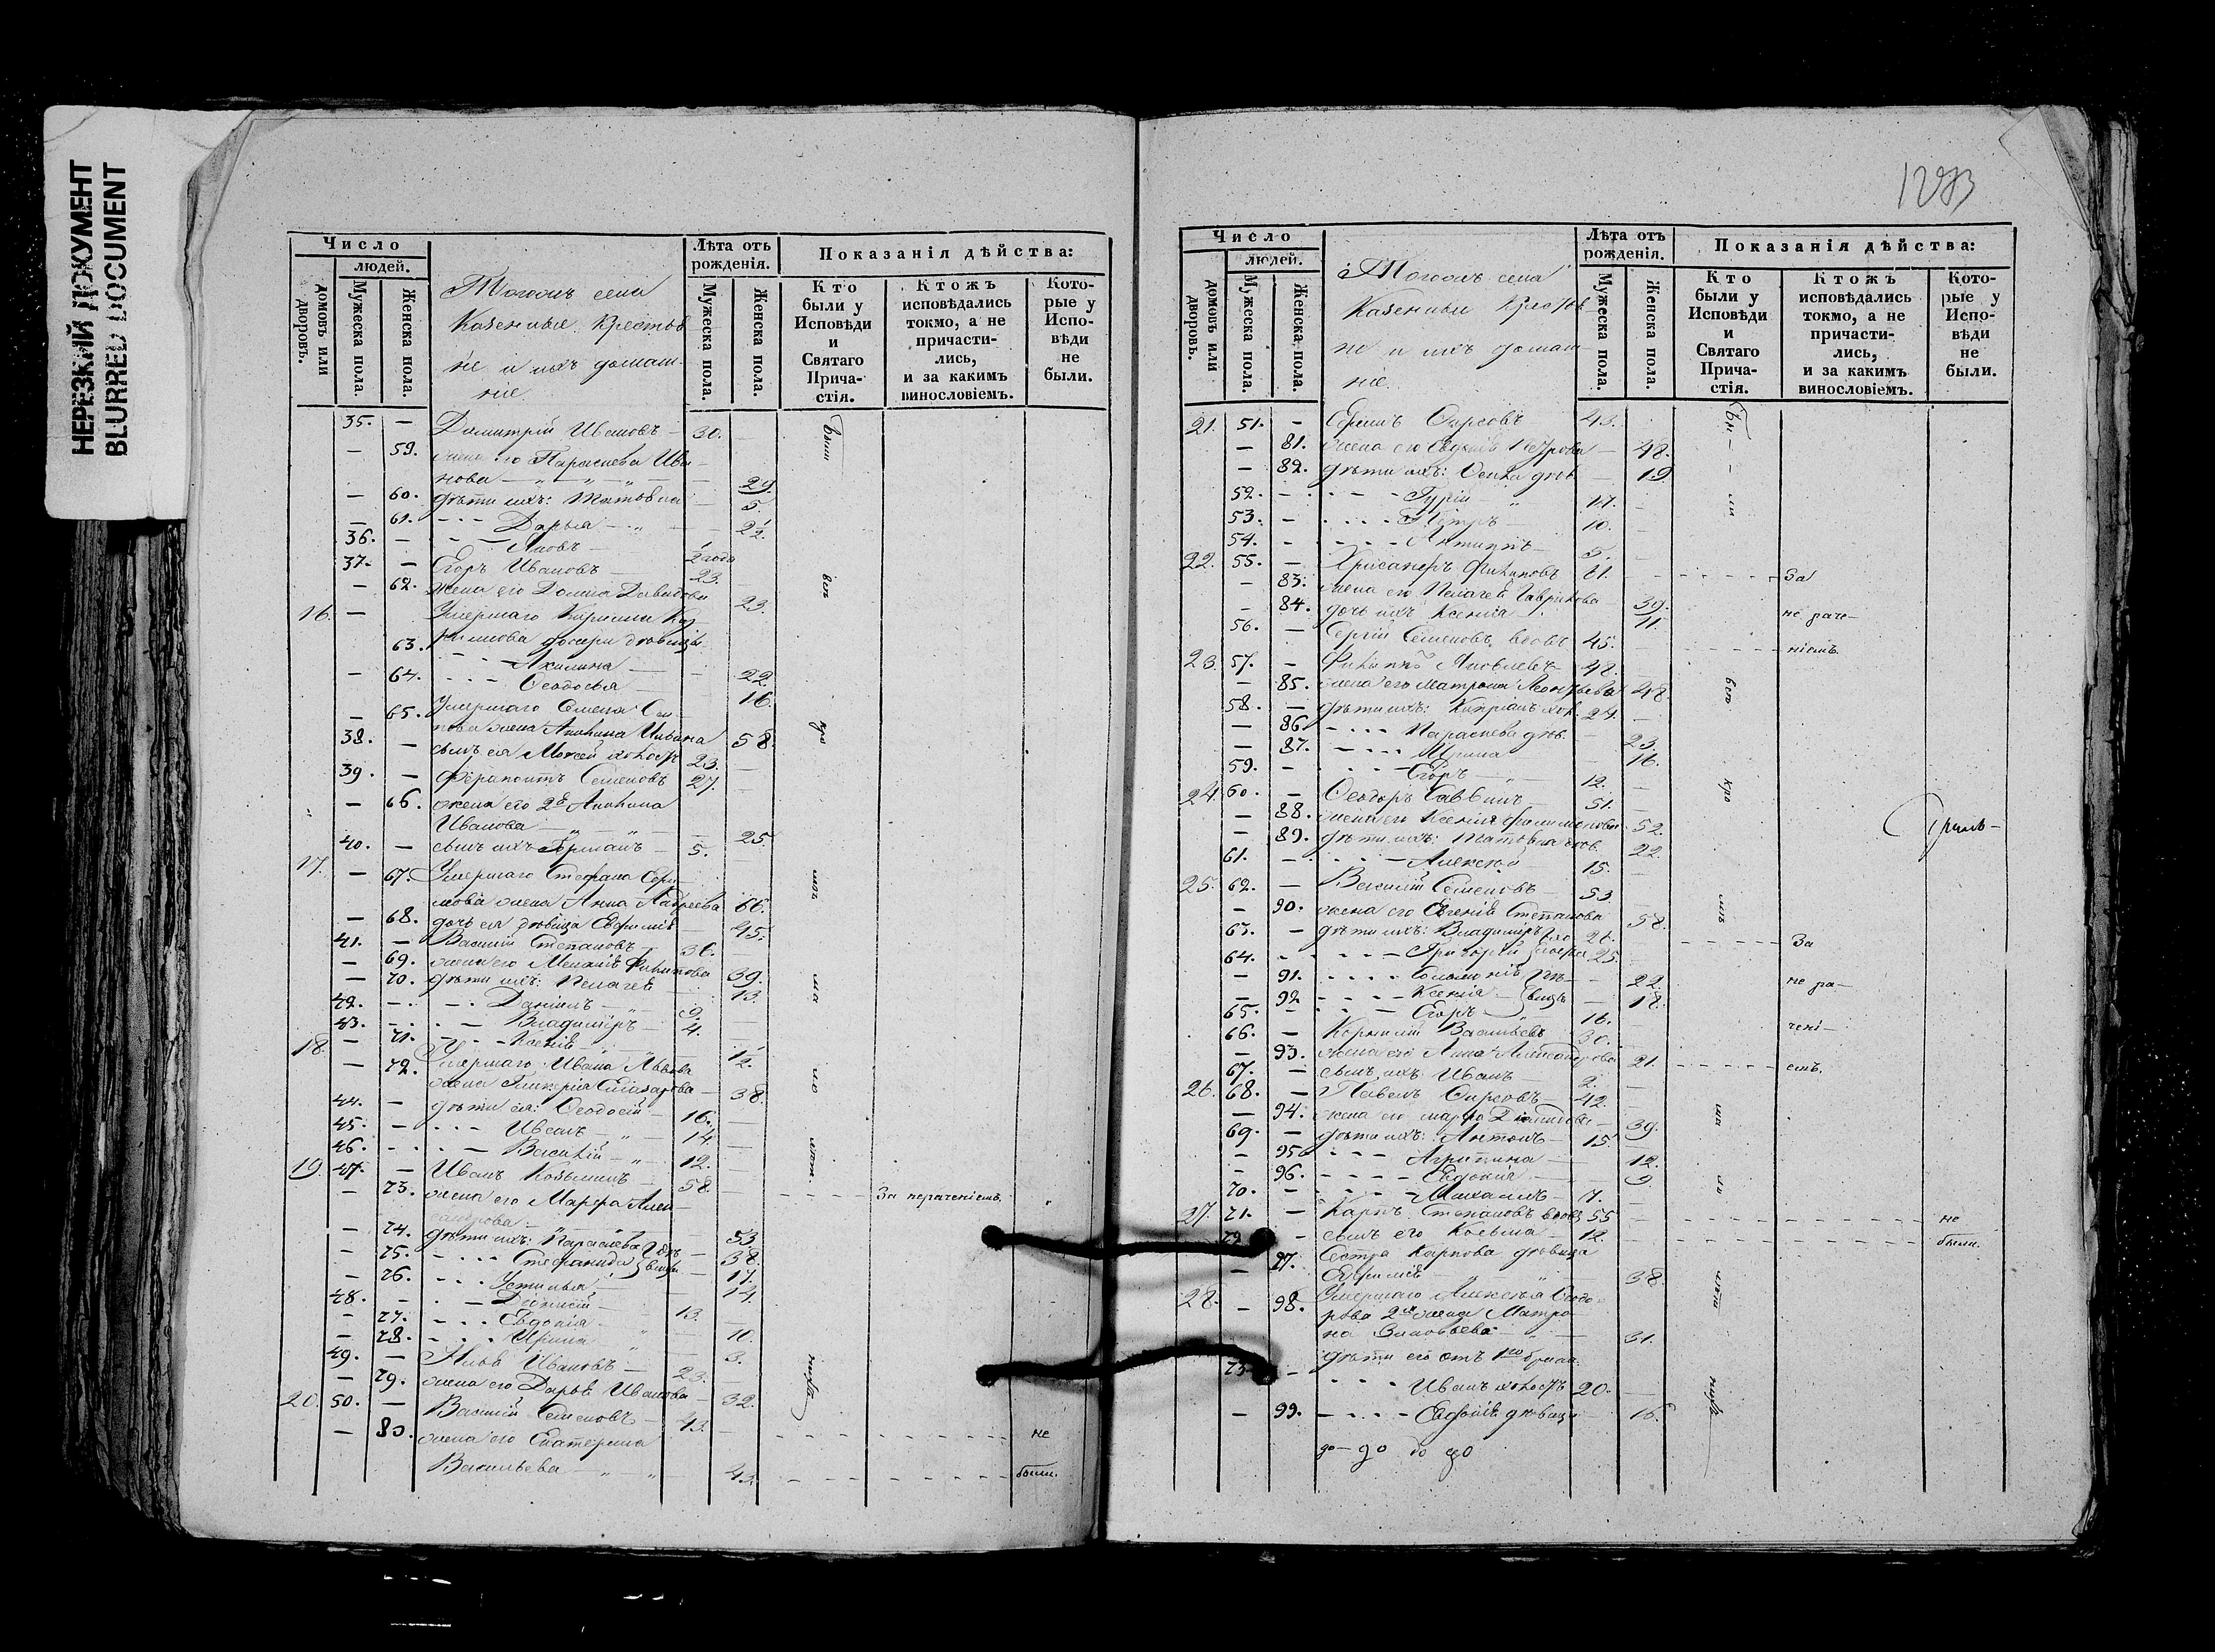 НЕРЕЗКИЙ ДОКУМЕНТ
BLURRED DOCUMENT
Число
людей.
домовъ или дворовъ.
Мужеска пола.
Женска пола.
Тогожъ села
Казенные Крестья
не и ихъ домаш-
ніе.
Лѣта отъ рожденія.
Мужеска пола.
Женска пола.
Показанія дѣйства:
Кто были у Исповѣди и Святаго Прича-стія.
Ктожъ исповѣдались токмо, а не причасти-лись, и за какимъ винословіемъ.
Кото-рые у Испо-вѣди не были.
35. — Димитрій Ивановъ — 30.
— 59. жена его Параскева Ива-
нова — 29.
— 60. дѣти ихъ: — 5.
— 61. Дарья — 2½.
36. — Яковъ — ½ года
37. — Егоръ Ивановъ 23.
— 62. жена его Домна Давидова 23.
16. — Умершаго
63. дочери дѣвицы
Акилина — 22.
— 64. Ѳеодосья 16.
— 65. Умершаго Семена
жена Акилина 58.
38. — сынъ ея Моисей холостъ 23.
39. — Ферапонтъ Семеновъ 27.
— 66. жена его 2я Акилина
Иванова — 25.
40. — сынъ ихъ Германъ — 5.
17. — 67. Умершаго Стефана
жена Анна Андреева 66.
— 68. дочь ея дѣвица Евфимія 45.
41. — Василій Степановъ — 36.
— 69. жена его Меланія Филипова 39.
— 70. дѣти ихъ: Пелагея 13.
42. — Даніилъ — 9.
43. — Владимиръ — 4.
— 71. Ксенія ½.
18. — 72. Умершаго Ивана Львова
жена Гликерія Елиазарова — 38.
44. — дѣти ея: Ѳеодосій — 16.
45. — Иванъ — 14.
46. — Василій — 12.
19. 47. — Иванъ Козьминъ — 58.
— 73. жена его Марѳа Алек-
сандрова — 53.
За нераченіемъ.
— 74. дѣти ихъ: Параскева 38.
— 75. Стефанида 17.
— 76. Устинья 14.
48. — Діонисій — 13.
— 77. Евдокія — 10.
— 78. Ирина — 3.
49. — Ивановъ — 23.
— 79. жена его Дарья Иванова — 32.
20. 50. — Василій Семеновъ — 43.
— 80. жена его Екатерина
Васильева
не
были.
Были
всѣ
кро
мѣ
1283
Число
людей.
домовъ или дворовъ.
Мужеска пола.
Женска пола.
Тогожъ села
Казенные Крестья
не и ихъ домаш-
ніе.
Лѣта отъ рожденія.
Мужеска пола.
Женска пола.
Показанія дѣйства:
Кто были у Исповѣди и Святаго Прича-стія.
Ктожъ исповѣдались токмо, а не причасти-лись, и за какимъ винословіемъ.
Кото-рые у Испо-вѣди не были.
21. 51. — Ефимъ Фирсовъ 43.
— 81. жена его Евдокія Петрова — 48.
— 82. дѣти ихъ: Ѳекла дѣв. — 19
52. — Гурій 17.
53. — Петръ 10.
54. — Антипъ — 5.
22. 55. — Хрисанфъ Филиповъ 81.
— 83. жена его Пелагея Гаврилова 39.
— 84. дочь ихъ Ксенія — 11.
За
не раче-
ніемъ.
56. — Сергій Семеновъ вдовъ 45.
23. 57. — Филипъ Яковлевъ 48.
— 85. жена его Матрона Леонтьева 48.
58. — дѣти ихъ: Кипріанъ хол. 24.
— 86. Параскева дѣв. — 23.
— 87. Ирина — 16.
59. — Егоръ — 12.
24. 60. — Ѳеодоръ Саввинъ 51.
— 88. жена его Ксенія Филимонова 52.
— 89. дѣти ихъ: дѣв. 22.
61. — Алексѣй — 15.
25. 62. — Василій Семеновъ 53.
— 90. жена его Евгенія Степанова 58.
63. — дѣти ихъ: Владимиръ 26.
64. — Григорій 25.
За
не ра-
чені-
емъ.
— 91. Соломонія 22
— 92 Ксенія 18.
65. — Егоръ 16.
66. — Корнилій Васильевъ 30.
— 93. жена его Анна Александрова 21.
67. — сынъ ихъ Иванъ 2.
26. 68. — Павелъ Фирсовъ — 42.
— 94. жена его Марѳа 39.
69. — дѣти ихъ: Антонъ — 15.
— 95 Агрипина — 12.
— 96. Евдокія — 9.
70. — Михаилъ — 7.
27. 71. — Карпъ Степановъ вдовъ 55
не
72. — сынъ его Козьма — 12.
были.
— 97. Сестра Карпова дѣвица
Евфимія 38.
28. — 98. Умершаго Алексѣя Ѳеодо-
рова 2я жена Матро-
на Зиновьева — 31.
73. — дѣти его отъ 1го брака
Иванъ холостъ 20.
— 99. Евдокія дѣвица 16.
Бы-
ли
всѣ
кро
мѣ